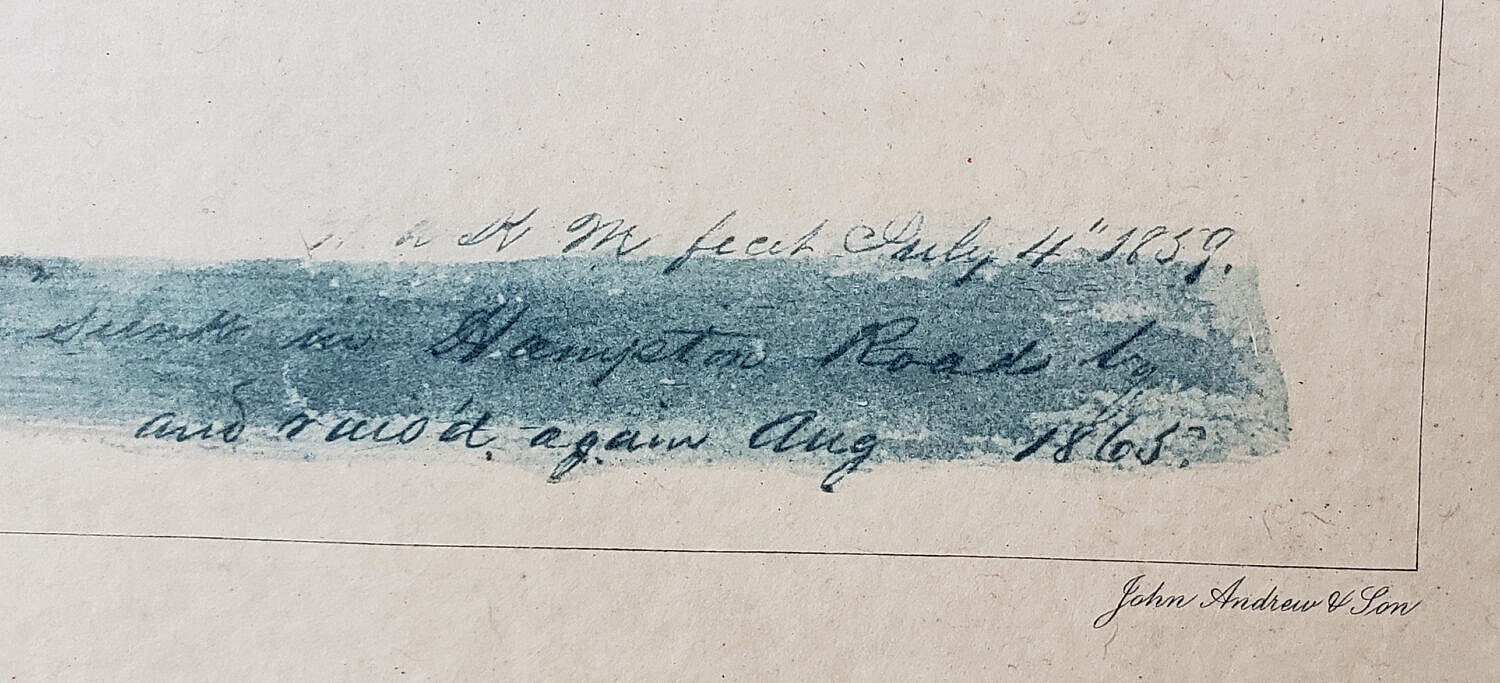 a K M fecit July 4" 1859.
sunk in Hampton Road by
and rais'd again Aug 1865.
John Andrew & Son